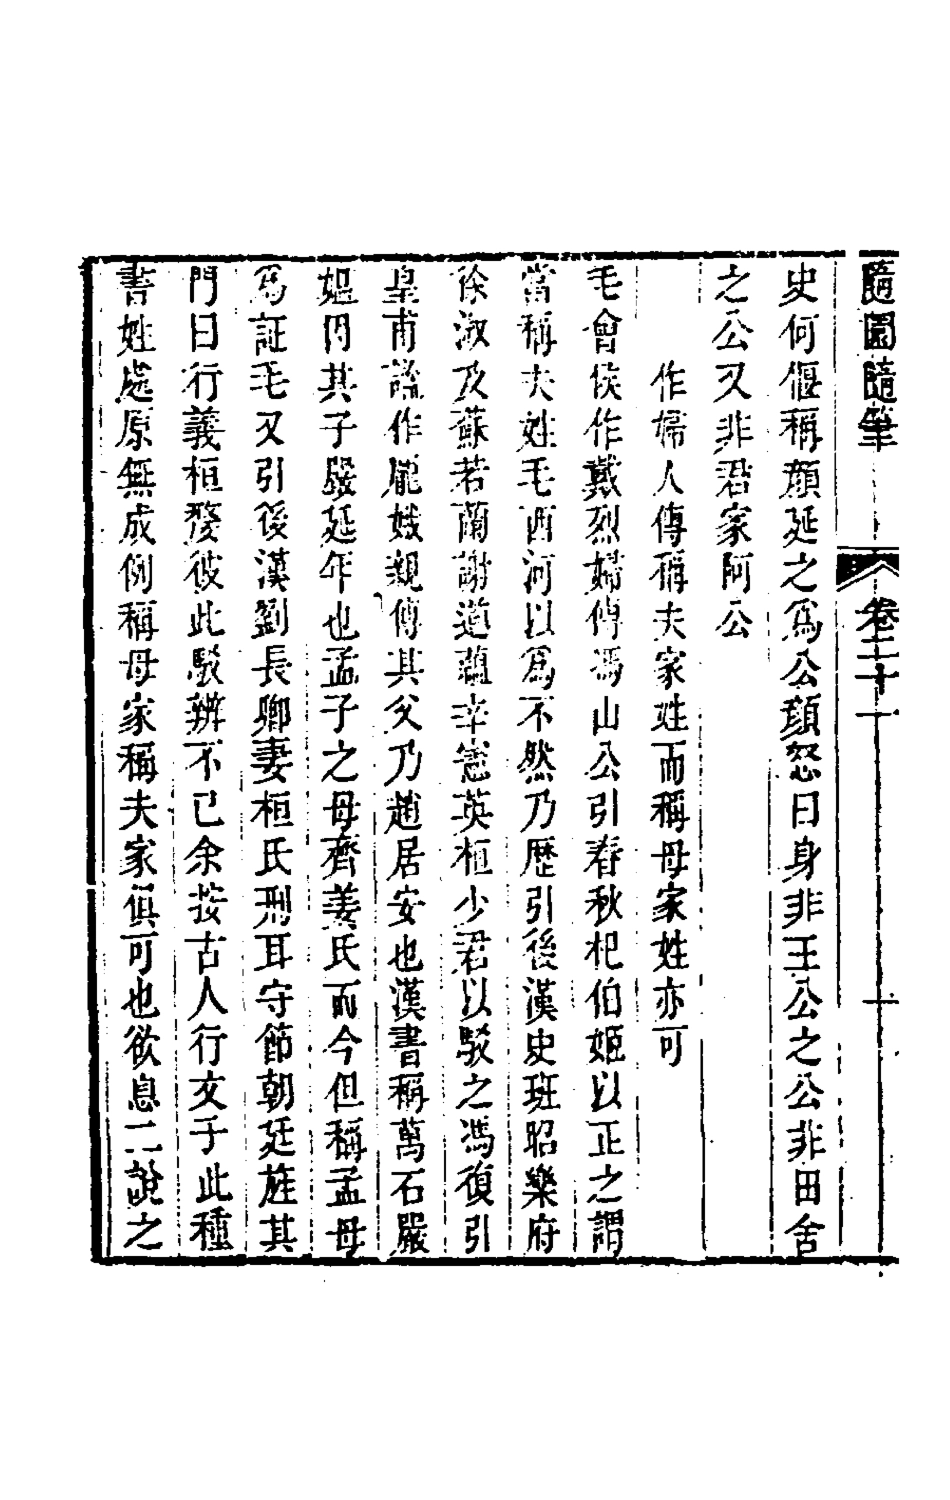 隨園隨筆 卷二十一 一
史何偃稱顏延之爲公顏怒曰身非王公之公非田舍
之公又非君家阿公
作婦人傳稱夫家姓而稱母家姓亦可
毛會侯作戴烈婦傳馮山公引春秋杞伯姬以正之謂
當稱夫姓毛西河以爲不然乃歷引後漢史班昭樂府
徐淑及蘇若蘭謝道蘊辛憲英桓少君以駁之馮復引
皇甫謐作龐娥親傳其父乃趙居安也漢書稱萬石嚴
嫗因其子嚴延年也孟子之母齊姜氏而今但稱孟母
爲証毛又引後漢劉長卿妻桓氏刑耳守節朝廷旌其
門曰行義桓嫠彼此駁辨不已余按古人行文于此種
書姓處原無成例稱母家稱夫家俱可也欲息二說之